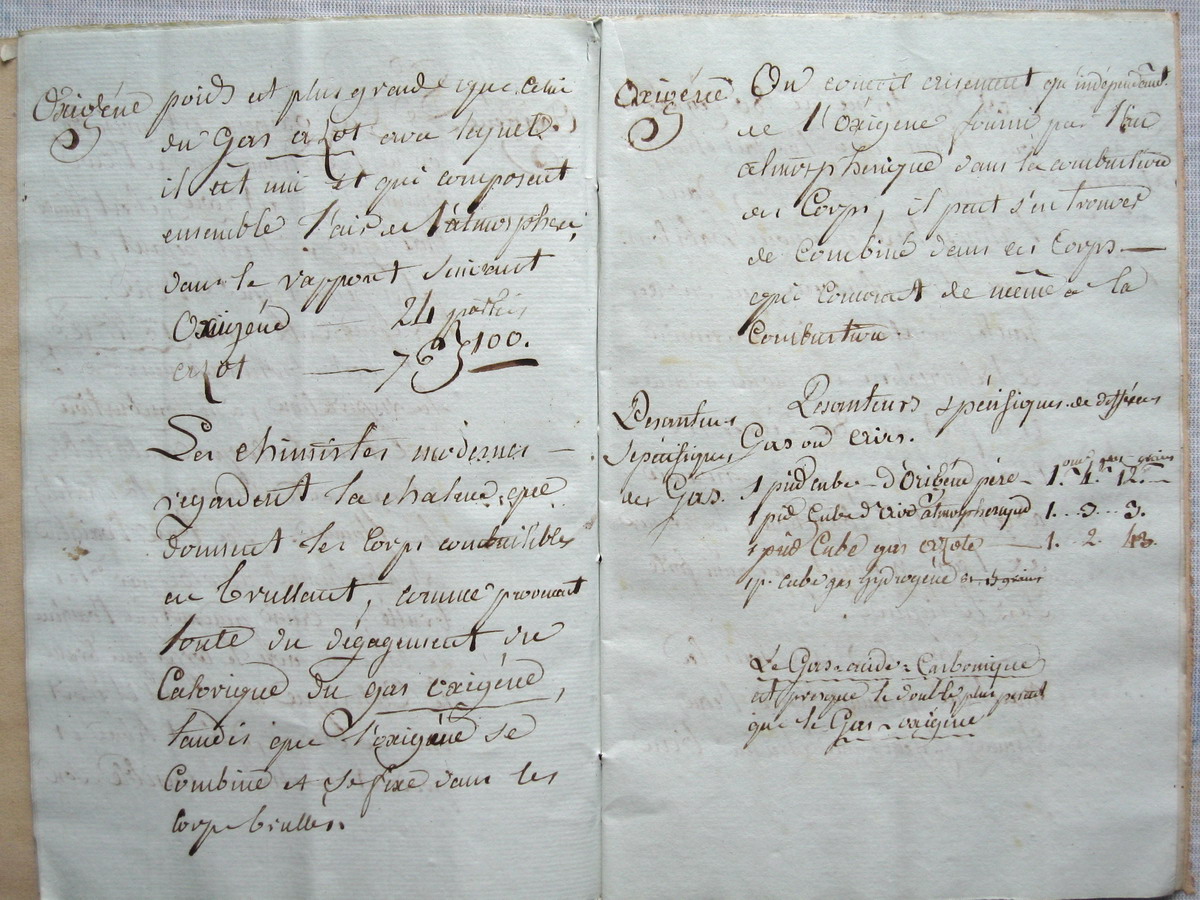 Oxigéne
poids est plus grande que celui
du Gas azot avec lequel
il est uni et qui composent
ensemble l'air de l'atmosphere,
dans le rapport suivant
Oxigéne — 24 parties
azot — 76 } 100.
Les chimistes modernes —
regardent la chaleur, que
donnent les Corps combustibles
en brullant, comme provenant
toute du dégagement du
Calorique du gas oxigéné,
tandis que l'oxigéne se
Combine et se fixe dans les
Corps brullés.
Oxigéne
On concoit aisement qu'indépendament
de l'Oxigene fourni par l'air
atmospherique dans la combustion
des Corps, il peut s'en trouver
de Combiné dans ces Corps —
qui concourt de même a la
Combustion
Pesanteurs
spécifiques
des Gas.
Pesanteurs spécifiques de différens
Gas ou airs.
onc. gros grains
1 pied cube d'Oxigéne pure — 1. 4. 12. —
1 pied Cube d'air atmospherique 1. 3. 3.
1 pied Cube gas azote — 1. 2. 48.
1 p. cube gas hydrogéne
Le Gas-acide-Carbonique
est presque le double plus pesant
que le Gas-oxigéne